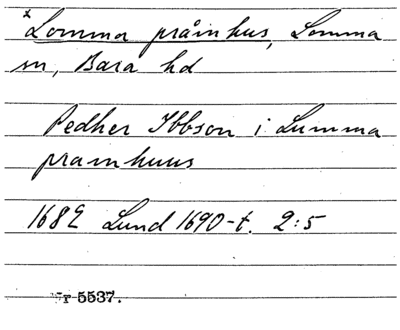 x Lomma pråmhus, Lomma
sn, Bara hd
Pedher Ibbson i Lumma
pramhuus
1682 Lund 1690-t. 2:5
Nr 5537.